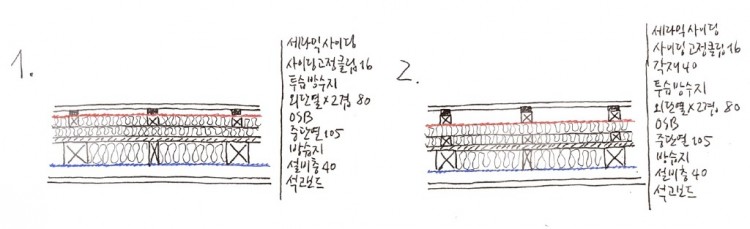 1.
세라믹사이딩
사이딩고정클립16
투습방수지
외단열×2겹 80
OSB
중단열105
방습지
설비층40
석고보드
2.
세라믹사이딩
사이딩고정클립16
각재40
투습방수지
외단열×2겹 80
OSB
중단열105
방습지
설비층40
석고보드